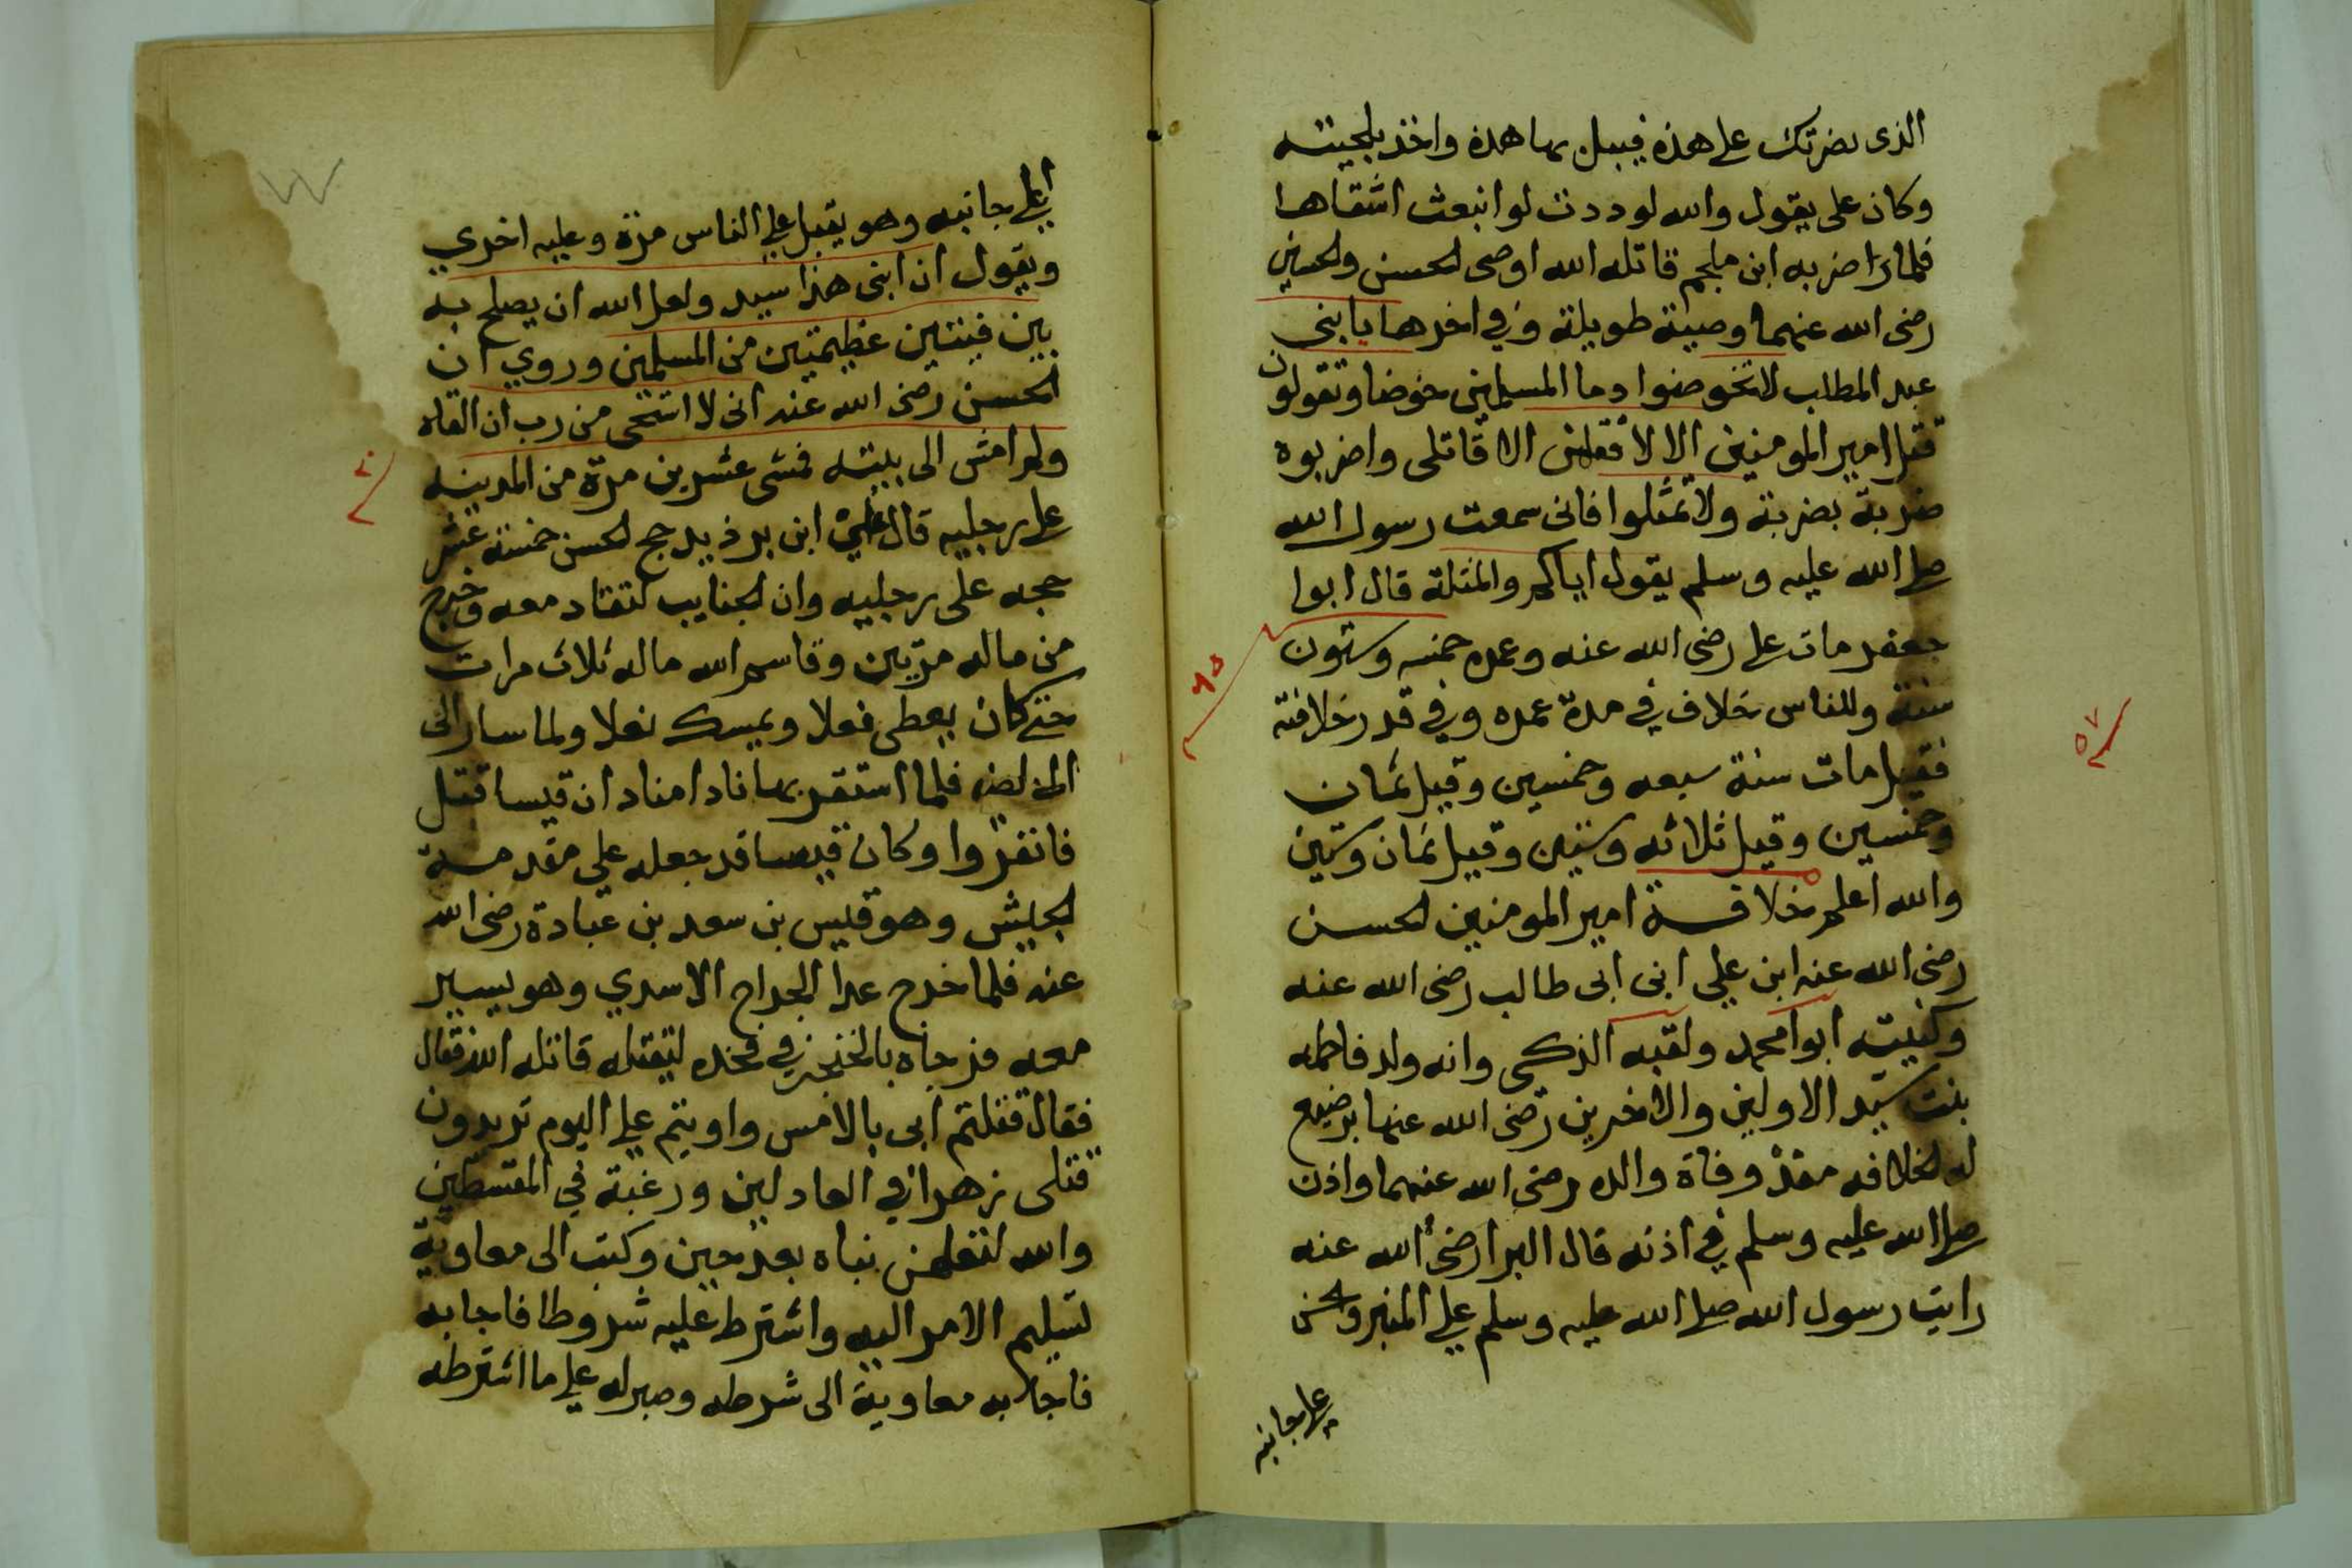 الذى يضربك على هذه فيبل بها هذه واخذ بلحيته
وكان على يقول والله لوددت لو انبعث اشقاها
فلما ضربه ابن ملجم قاتله الله اوصى الحسن والحسين
رضى الله عنهما وصية طويلة وفي اخرها يا بنى
عبد المطلب لا تخوضوا دما المسلمين خوضا وتقولون
قتل امير المومنين الا لا تقتلن الا قاتلى واضربوه
ضربة بضربة ولا تمثلوا فانى سمعت رسول الله
صلى الله عليه وسلم يقول اياكم والمثلة قال ابوا
جعفر مات على رضى الله عنه وعمره خمسه وستون
سنة وللناس خلاف في مدة عمره وفي قدر خلافته
فقيل مات سنة سبعه وخمسين وقيل ثمان
وخمسين وقيل ثلاثه وستين وقيل ثمان وستين
والله اعلم خلافة امير المومنين الحسن
رضى الله عنه ابن علي ابن ابى طالب رضى الله عنه
وكنيته ابوا محمد ولقبه الزكى وانه ولد فاطمه
بنت سيد الاولين والاخرين رضى الله عنها بويع
له الخلافه منذ وفاة والده رضى الله عنهما واذن
صلى الله عليه وسلم في اذنه قال البرا رضى الله عنه
رايت رسول الله صلى الله عليه وسلم على المنبر والحسن
على جانبه
٦٥
٥٧
الى جانبه وهو يقبل على الناس مرة وعليه اخري
ويقول ان ابنى هذا سيد ولعل الله ان يصلح به
بين فيئتين عظيمتين من المسلمين وروي ان
الحسن رضى الله عنه انى لا استحى من رب ان القاه
ولم امش الى بيته فمشى عشرين مرة من المدينه
على رجليه قال علي ابن بد ذيد حج الحسن خمسة عشر
حجه على رجليه وان الجنايب لتقاد معه وخرج
من ماله مرتين وقاسم الله ماله ثلاث مرات
حتى كان يعطى نعلا ويمسك نعلا ولما سار الى
فلما استقر بها نادا مناد ان قيسا قتل
فانفروا وكان قيسا قد جعله على مقدمة
الجيش وهو قيس بن سعد بن عبادة رضى الله
عنه فلما خرج عدا الجراح الاسدي وهو يسير
معه فوجاه بالخنجر في فخده ليقتله قاتله الله فقال
فقال قتلتم ابى بالامس واوبتم على اليوم تريدون
قتلى زهدا في العادلين ورغبة في المقسطين
والله لتعلمن نباه بعد حين وكتب الى معاوية
لتسليم الامر اليه واشترط عليه شروطا فاجابه
فاجابه معاوية الى شرطه وصبر له على ما اشترطه